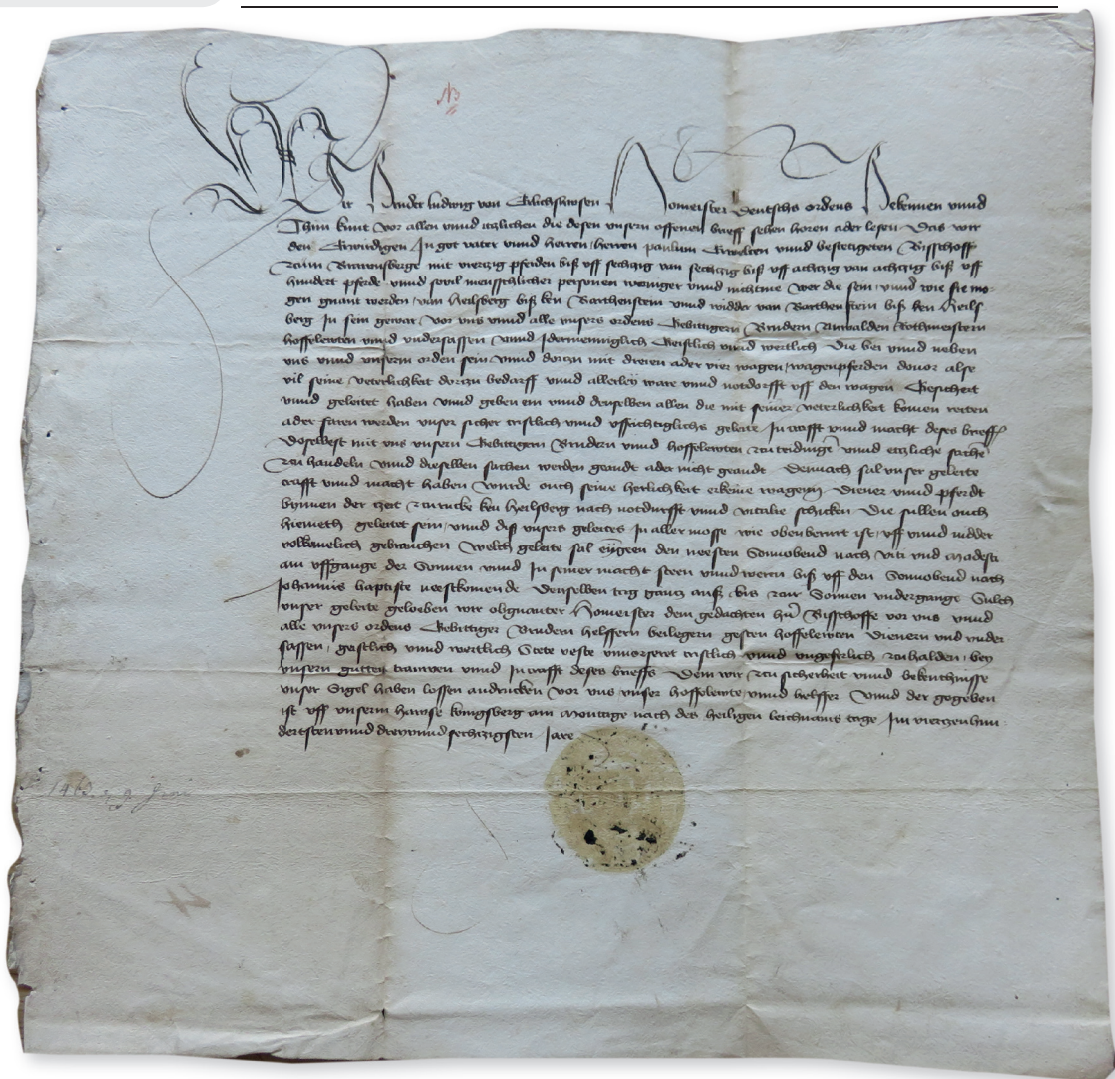 Wir Bruder ludwig von Erlichshwsen Homeister deutschs ordens Bekennen vnnd
Thun kunt vor allen vnnd itzlichen die desen vnsern offenen brieff sehen horen ader lesen Das wir
den Erwirdigen In got vater vnnd herren herren paulum Erwelten vnnd bestetigeten Bisschoff
czum Brawnsberge mit vierczig pferden biß vff sechczig van sechczig biß vff achczig van achczig biß vff
hundert pferde vnnd sovil menschlicher personen weniger vnnd nichtme wer die sein vnnd wie sie mo-
gen gnant werden von Heilsberg biß ken Barthenstein vnnd widder van Barthenstein biß ken Heils
berg In sein gewar vor vns vnnd alle vnsers ordens Gebittigern Brudern Anwalden Rothmeistern
hoffelewten vnnd vndersassen vnnd Idermenniglich Geistlich vnnd wertlich Die bei vnnd neben
vns vnnd vnserm orden sein vnnd doczu mit dreien ader vier wagen wagenpferden dovor alse
vil seine veterlichkeit dorczu bedarff vnnd allerley ware vnnd notdorfft vff den wagen Gesichert
vnnd geleitet haben vnnd geben em vnnd denselben allen die mit seiner veterlichkeit komen reiten
ader faren werden vnser sicher cristlich vnnd vffrichtiglichs geleite In crafft vnnd macht deses brieffs
Doselbest mit vns vnsern Gebittigern Brudern vnnd hoffelewten czu teidinge vnnd etzliche sache
czu handeln vnnd dieselben sachen werden geandt ader nicht geandt Dennach sal vnser geleite
crafft vnnd macht haben wurde ouch seine herlichkeit erkeine wagenn Diener vnnd pferdt
bynnen der czeit czurucke ken heilsberg nach notdurfft vnnd vitalie schicken Die sullen ouch
hiemeth geleitet sein vnnd diß vnsers geleites In aller mosse wie obenberurt ist vff vnnd nidder
volkomelich gebrauchen Welch geleite sal den neesten Sonnobend nach viti vnd Modesti
am vffgange der Sonnen vnnd In seiner macht steen vnnd weren biß vff den Sonnobend nach
Johannis baptiste neestkomende Denselben tag gancz auß bis czur Sonnen vndergange Sulch
vnser geleite geloeben wir obgnanter Homeister dem gedachten hern Bisschoffe vor vns vnnd
alle vnsers ordens Gebittiger Brudern helffern beilegern gesten hoffelewten Dienern vnd vnder
sassen geistlich vnnd wertlich Stete veste vnvorseret cristlich vnnd vngeferlich czu halden bey
vnsern gutten trawen vnnd In crafft deses brieffs Dem wir czu sicherheit vnnd bekenthnisse
vnser Sigel haben lossen andrucken vor vns vnser hoffelewte vnnd helffer Vnnd der gegeben
ist vff vnserm hawse konigsberg am Montage nach des heiligen leichnams tage Im vierczenhun
dertsten vnnd dreyvnnd sechczigsten Jare